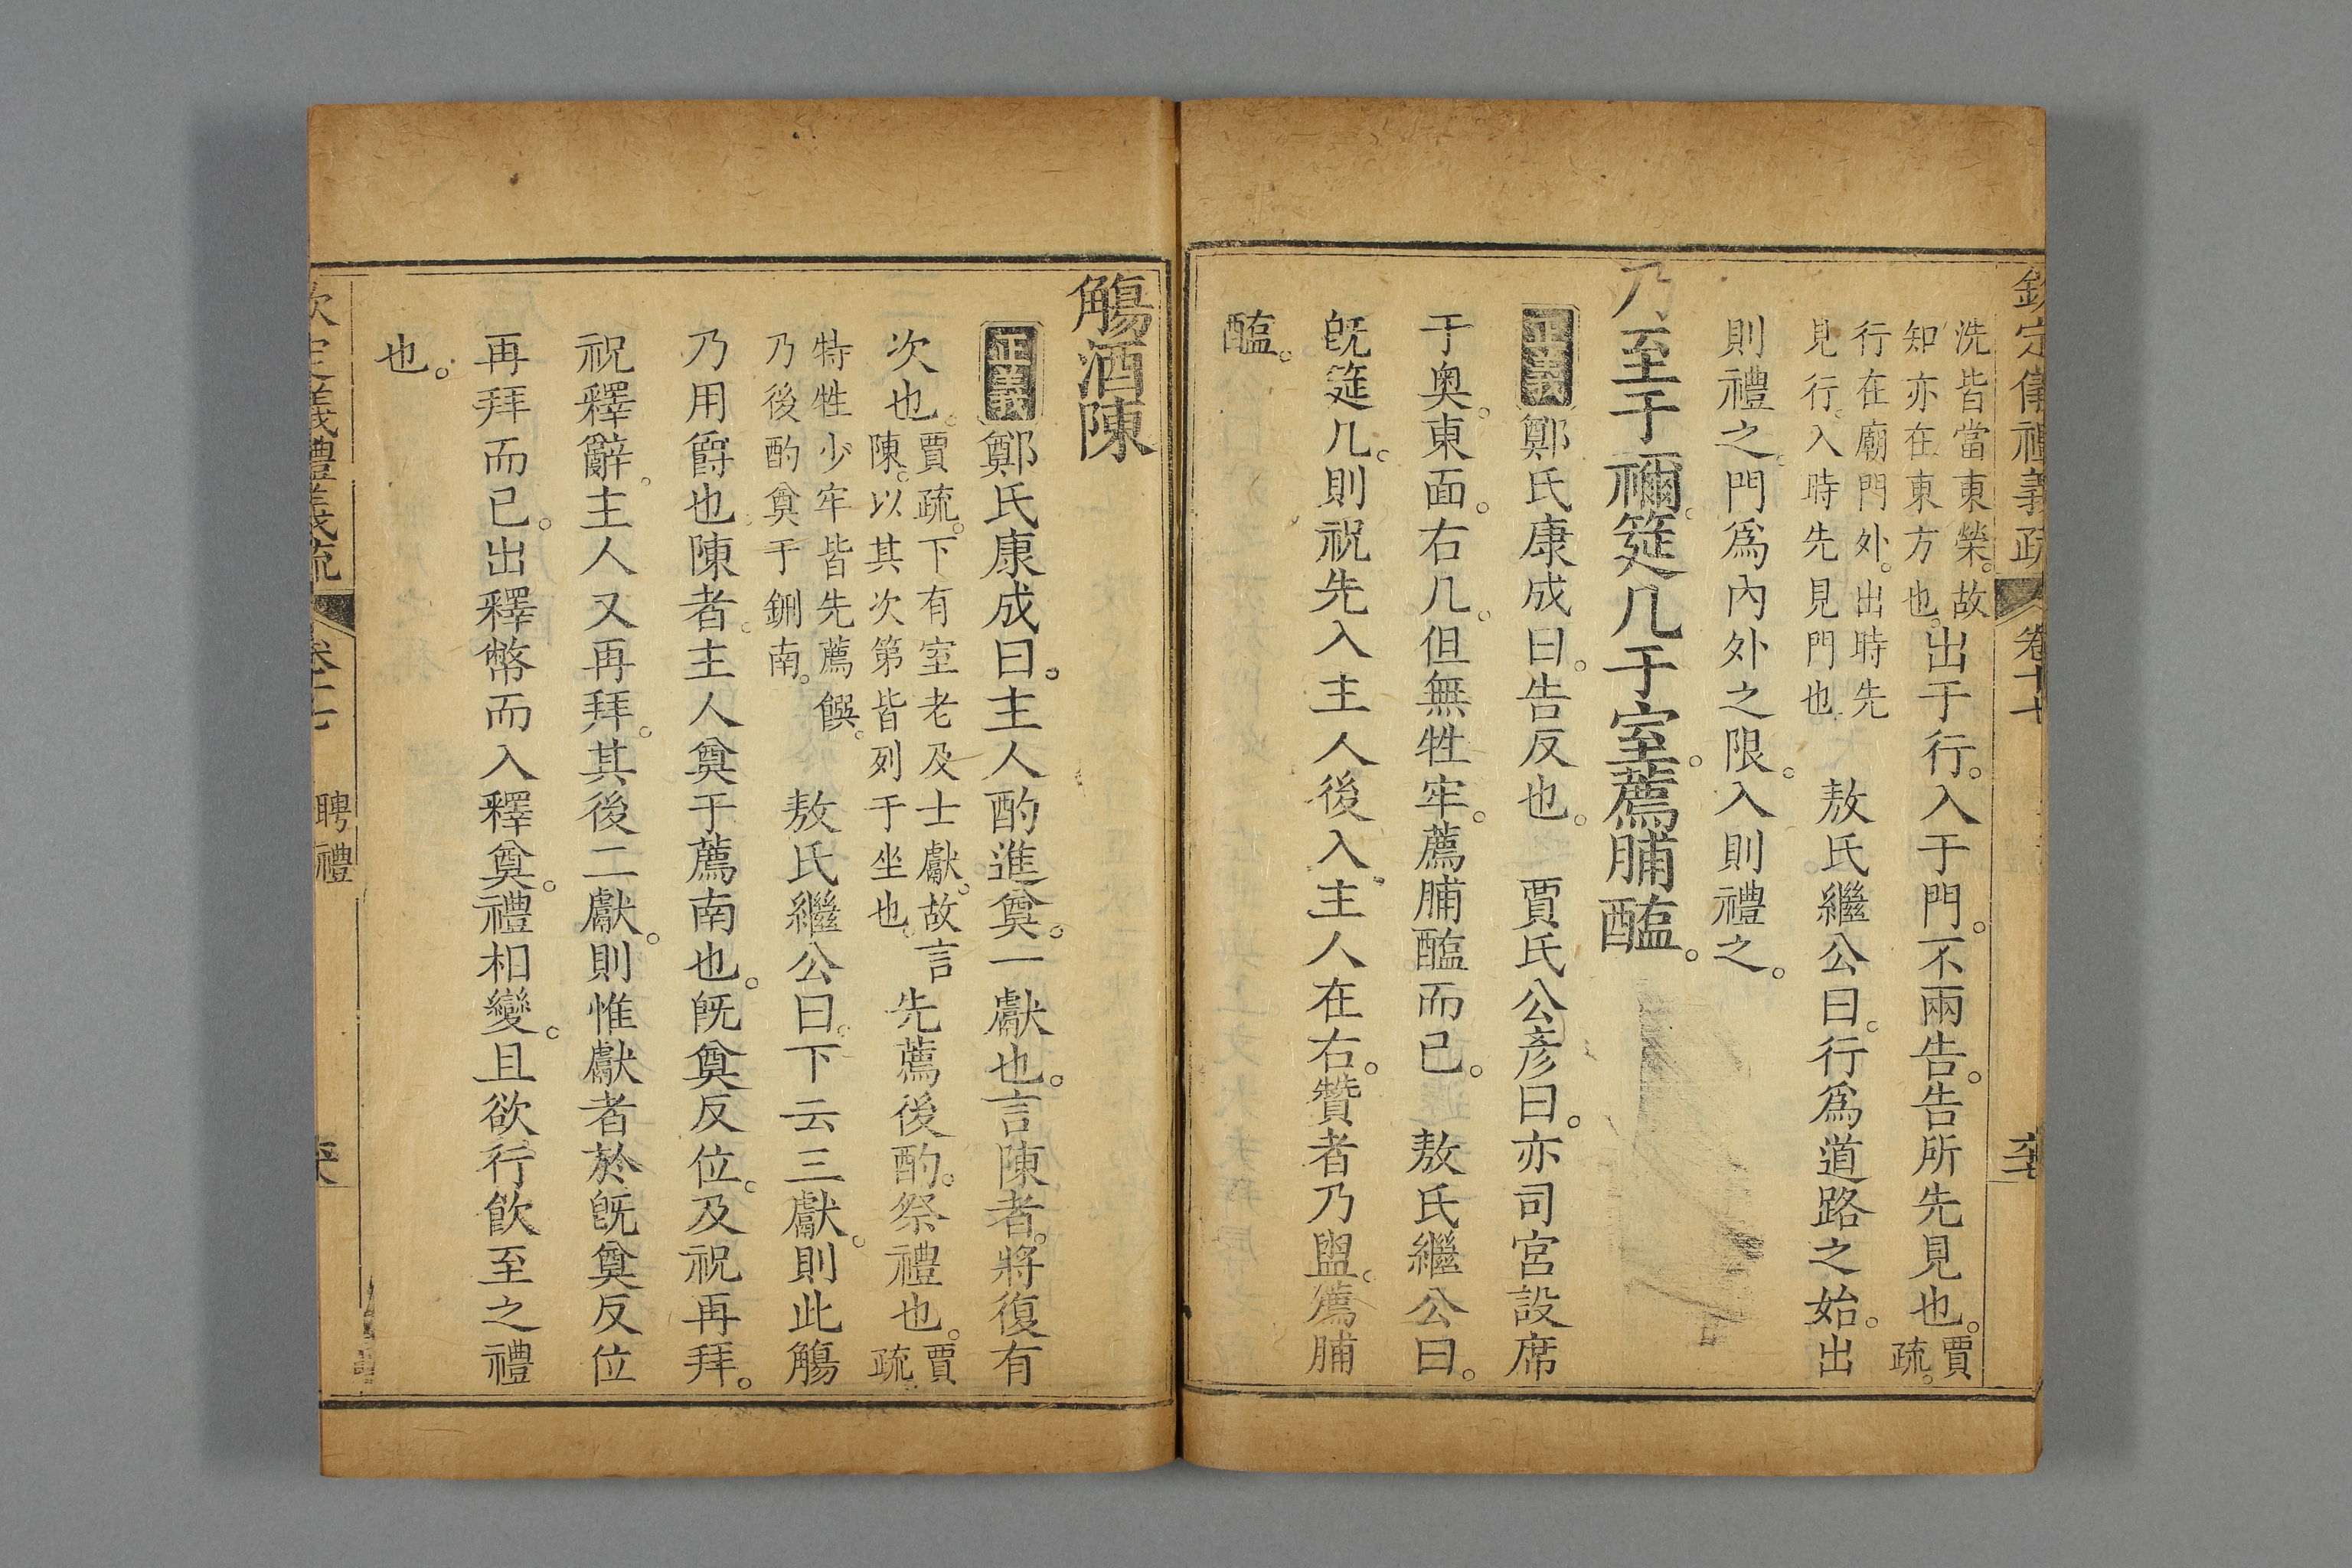 欽定儀禮義疏 卷十七
洗皆當東榮。故
知亦在東方也。
出于行。入于門。不兩告。告所先見也。
賈
疏。
行在廟門外。出時先
見行。入時先見門也
敖氏繼公曰。行爲道路之始。出
則禮之。門爲內外之限。入則禮之。
乃至于禰。筵几于室。薦脯醢。
正義鄭氏康成曰。告反也。 賈氏公彥曰。亦司宮設席
于奧。東面。右几。但無牲牢。薦脯醢而已。 敖氏繼公曰。
旣筵几。則祝先入。主人後入。主人在右。贊者乃盥。薦脯
醢。
觴酒陳
正義鄭氏康成曰。主人酌進奠。一獻也。言陳者。將復有
次也。
賈疏。下有室老及士獻。故言
陳。以其次第皆列于坐也。
先薦後酌。祭禮也。
賈
疏
特牲少牢皆先薦饌。
乃後酌奠于鉶南。
敖氏繼公曰。下云三獻。則此觴
乃用爵也。陳者。主人奠于薦南也。旣奠反位。及祝再拜。
祝釋辭。主人又再拜。其後二獻。則惟獻者於旣奠反位
再拜而已。出釋幣而入釋奠。禮相變。且欲行飮至之禮
也。
欽定儀禮義疏 卷十七 聘禮